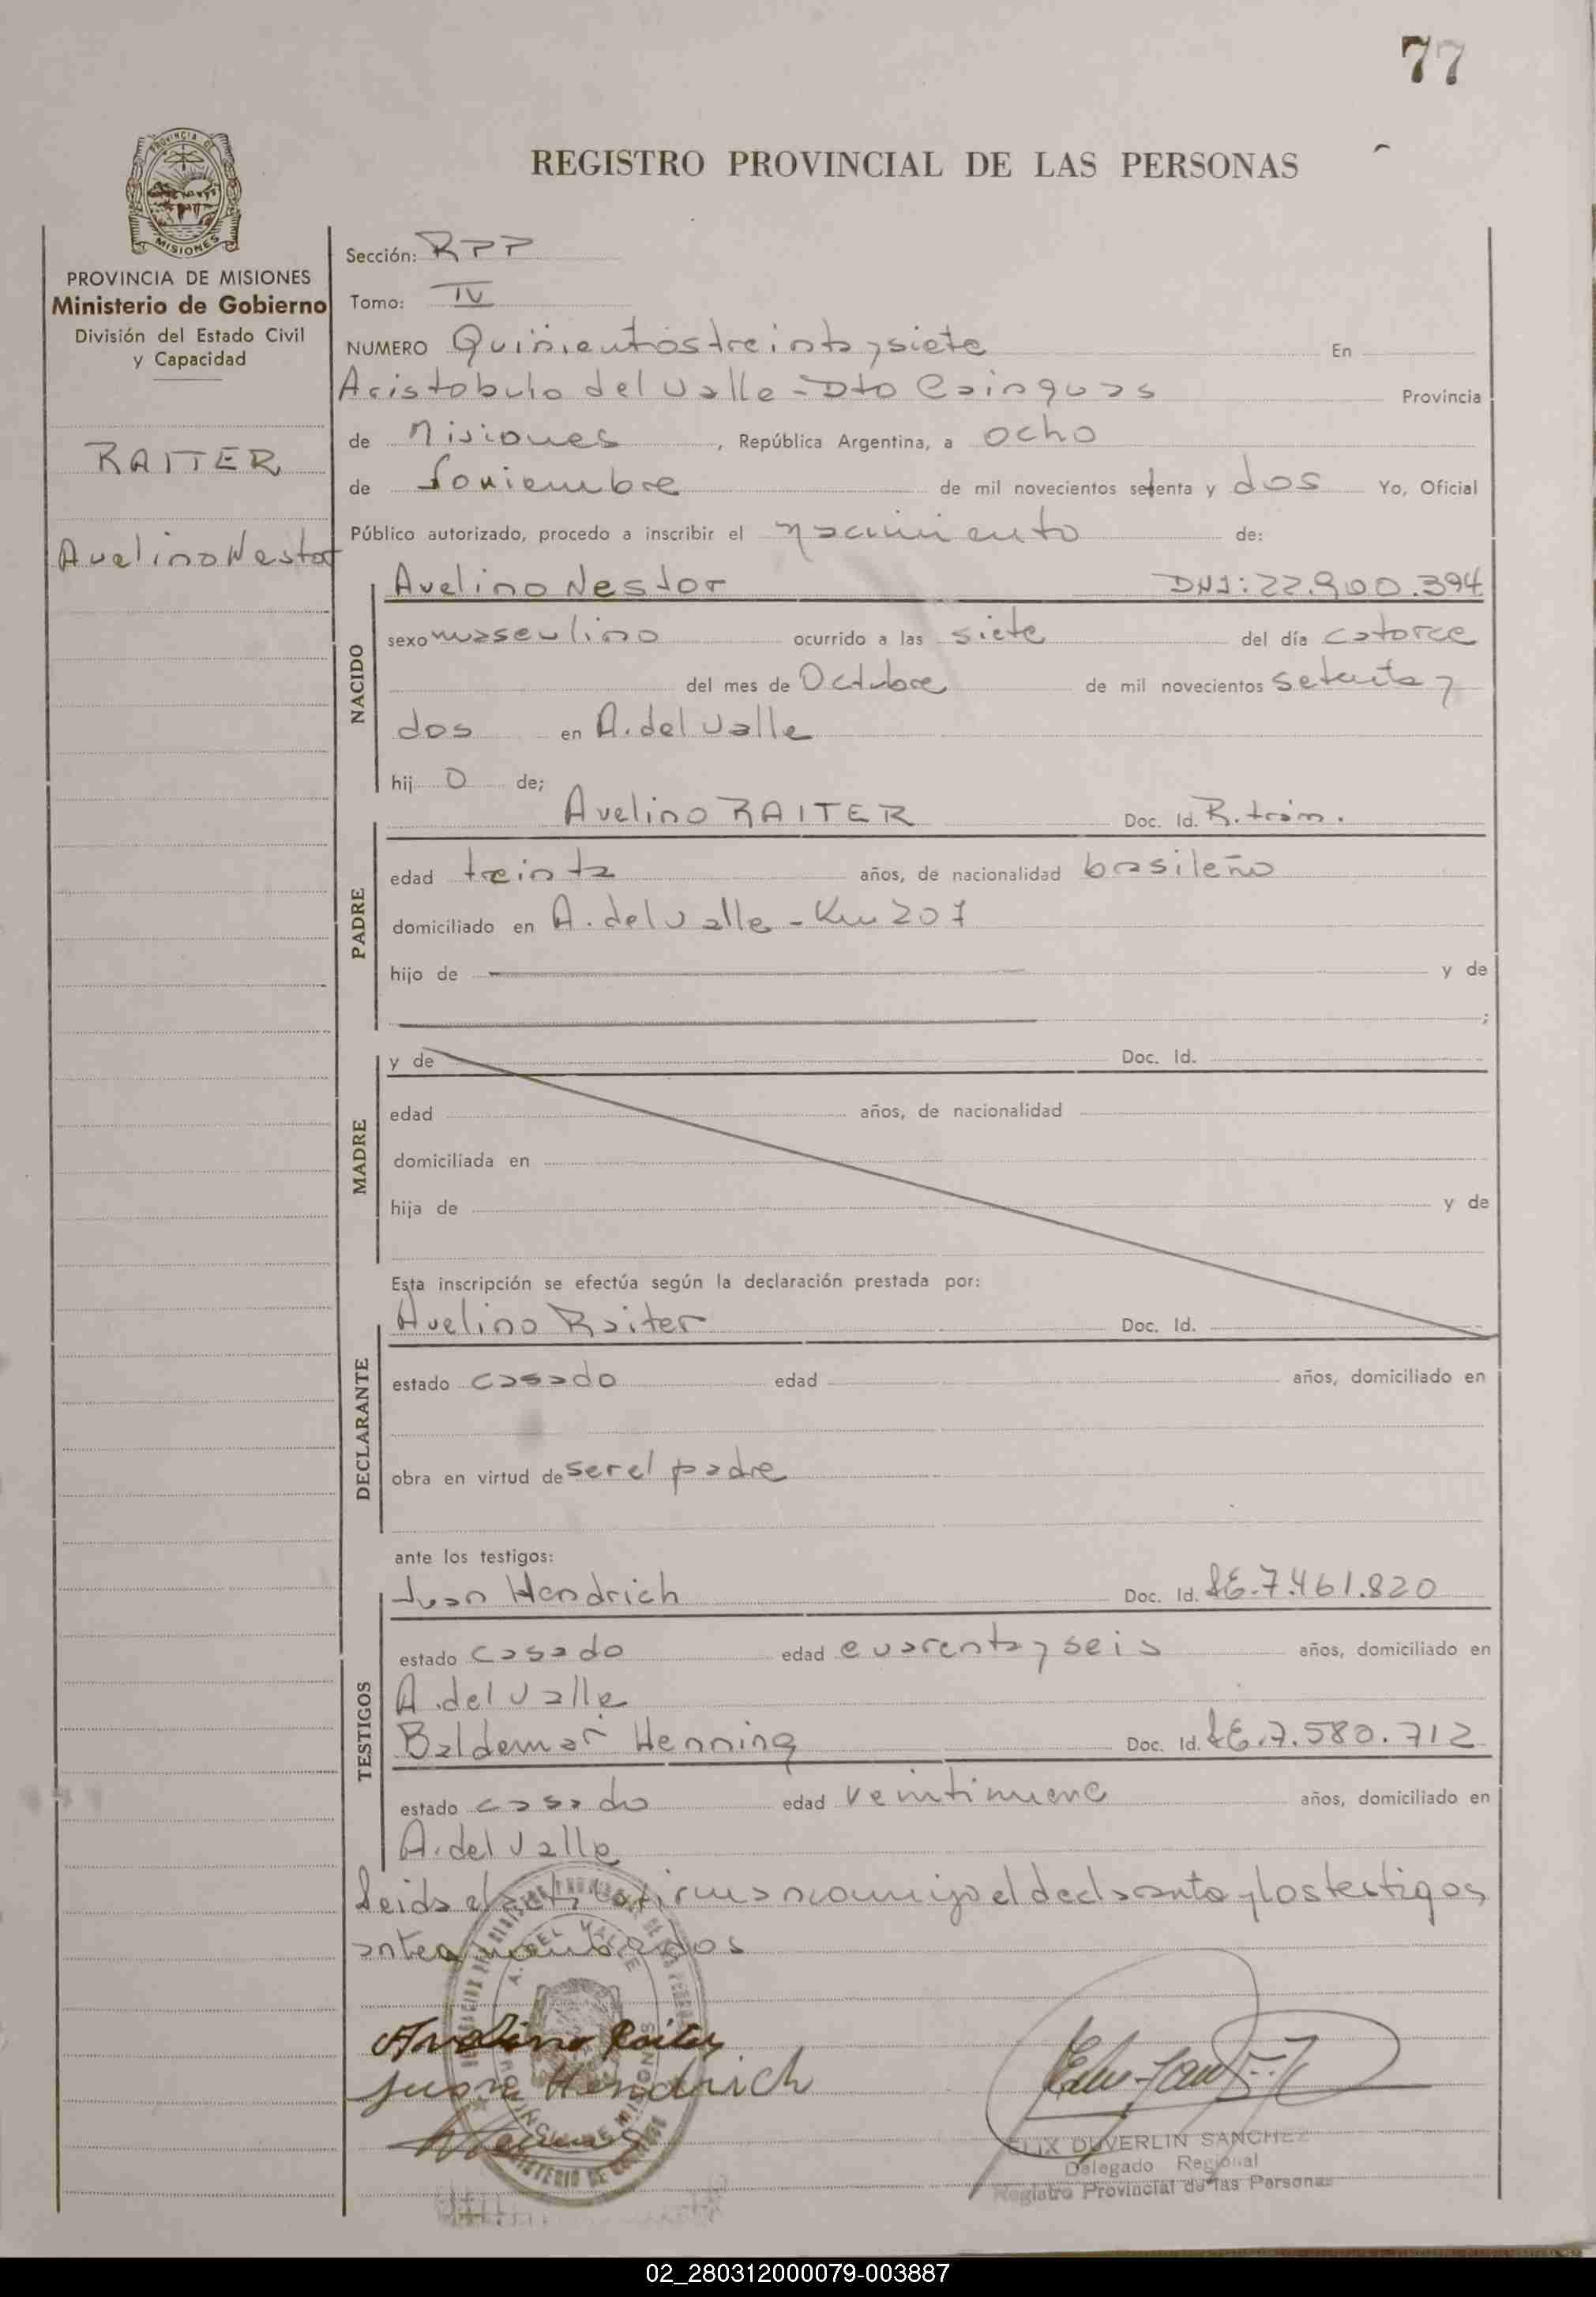 77
REGISTRO PROVINCIAL DE LAS PERSONAS
PROVINCIA DE MISIONES
PROVINCIA DE MISIONES
Ministerio de Gobierno
División del Estado Civil
y Capacidad
RAITER
Avelino Nestor
Sección: RPP
Tomo: IV
NUMERO Quinientos treinta y siete En
Aristobulo del Valle - Dto Cainguas Provincia
de Misiones, República Argentina, a ocho
de Noviembre de mil novecientos setenta y dos Yo, Oficial
Público autorizado, procedo a inscribir el nacimiento de:
NACIDO
Avelino Nestor DNI: 22.900.394
sexo masculino ocurrido a las siete del día catorce
del mes de Octubre de mil novecientos setenta y
dos en A. del Valle
hij o de;
PADRE
Avelino RAITER Doc. Id. R. trám.
edad treinta años, de nacionalidad brasileño
domiciliado en A. del Valle - Km 207
hijo de y de
;
MADRE
y de Doc. Id.
edad años, de nacionalidad
domiciliada en
hija de y de
Esta inscripción se efectúa según la declaración prestada por:
DECLARANTE
Avelino Raiter Doc. Id.
estado casado edad años, domiciliado en
obra en virtud de ser el padre
ante los testigos:
TESTIGOS
Juan Hendrich Doc. Id. LE. 7.461.820
estado casado edad cuarenta y seis años, domiciliado en
A. del Valle
Baldemar Henning Doc. Id. LE. 7.580.712
estado casado edad veintinueve años, domiciliado en
A. del Valle
Leida el acta, la firman conmigo el declarante y los testigos
antes nombrados
A. DEL VALLE
PROVINCIA DE MISIONES
MINISTERIO DE GOBIERNO
Avelino Raiter
Juan Hendrich
FELIX DUVERLIN SANCHEZ
Delegado Regional
Registro Provincial de las Personas
02_280312000079-003887